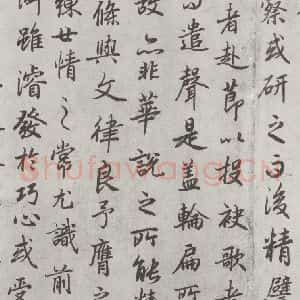 察或研之而後精譬
者赴節以投袂歌者
遣聲是蓋輪扁所
故亦非華說之所能精
條與文律良予膺之
練世情之常尤識前
雖濬發於巧心或受
Shufawang.Cn